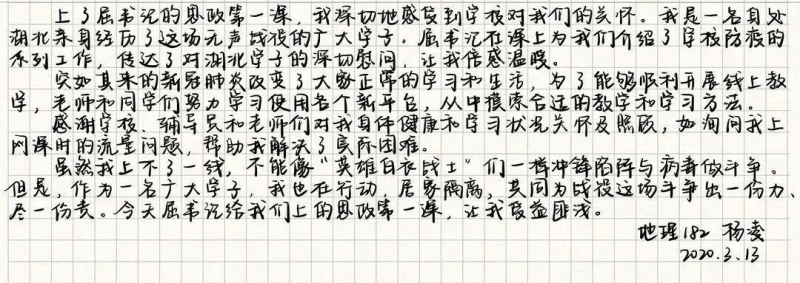 上了屈书记的思政第一课，我深切地感受到学校对我们的关怀。我是一名身处
湖北亲身经历了这场无声战役的广大学子，屈书记在课上为我们介绍了学校防疫的
系列工作，传达了对湖北学子的深切慰问，让我倍感温暖。
突如其来的新冠肺炎改变了大家正常的学习和生活，为了能够顺利开展线上教
学，老师和同学们努力学习使用各个新平台，从中摸索合适的教学和学习方法。
感谢学校、辅导员和老师们对我身体健康和学习状况关怀及照顾，如询问我上
网课时的流量问题，帮助我解决了实际困难。
虽然我上不了一线，不能像"英雄白衣战士"们一样冲锋陷阵与病毒做斗争。
但是，作为一名广大学子，我也在行动，居家隔离，共同为战役这场斗争出一份力、
尽一份责。今天屈书记给我们上的思政第一课，让我受益匪浅。
地理182 杨凌
2020.3.13